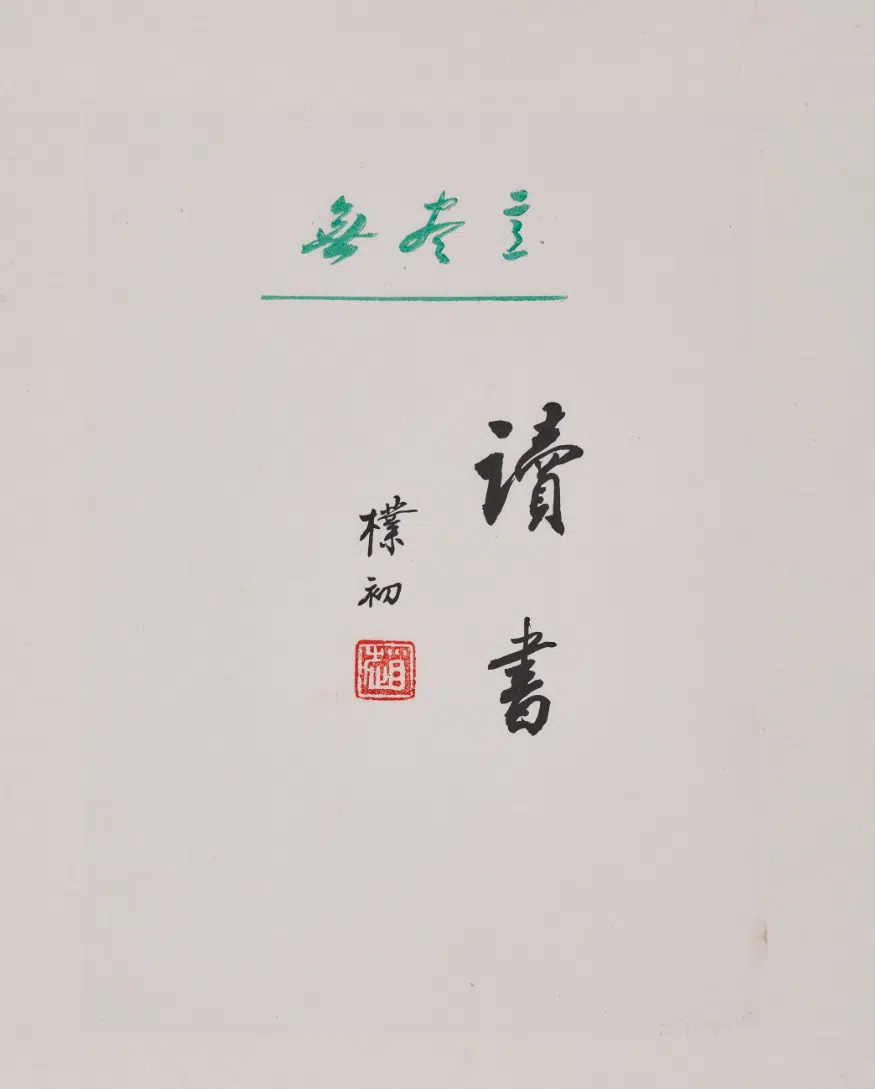 無盡意
讀書
樸初
趙